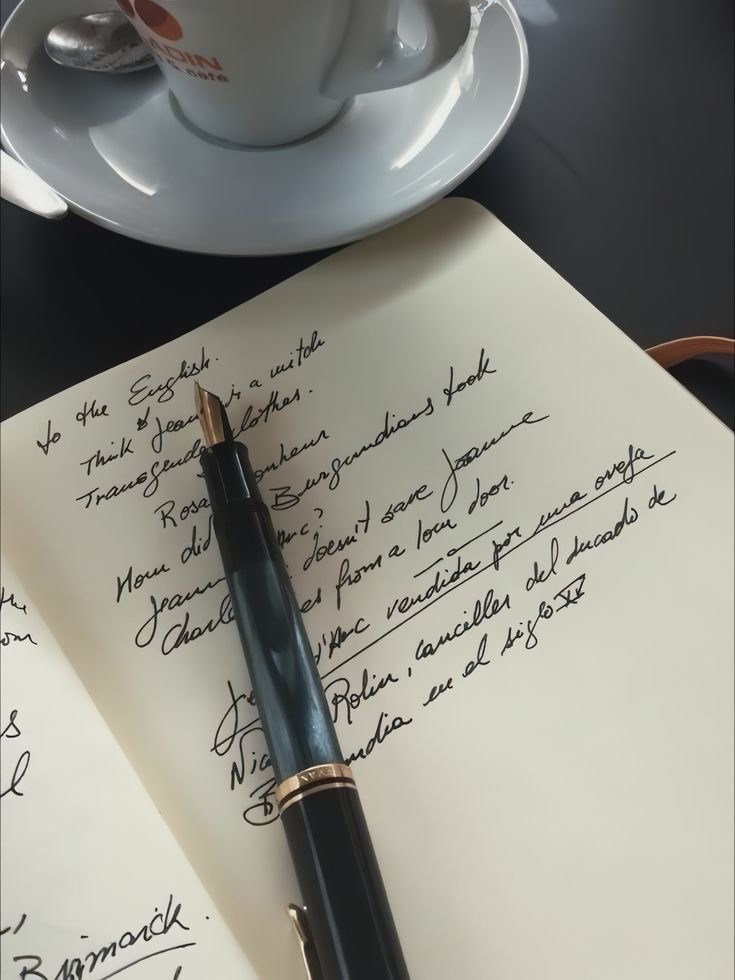 ADIN
café
to the English.
Think Jean is a witch
Transgende clothes.
Rosa onheur
How did Burgundians took
Jeann Arc?
doesn't save Joanne
Charl es from a low door.
d'Arc vendida por una oveja
Nic Rolin, canciller del ducado de
B ndia en el siglo XV
the
om
s
l
Bismarck.